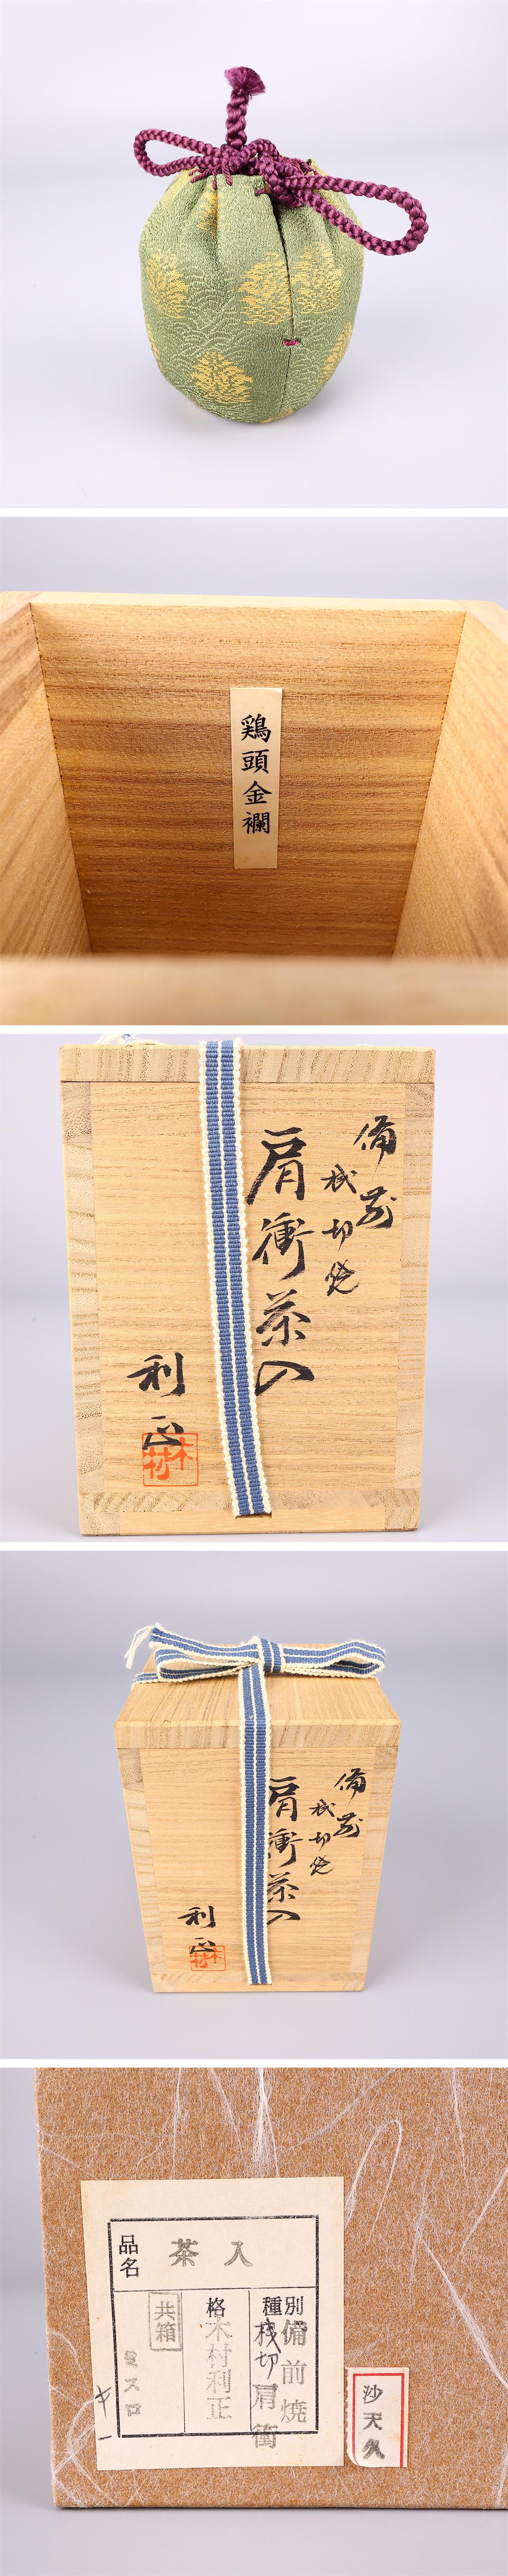 鶏頭金襴
備前
桟切焼
肩衝茶入
利正
木村
備前
桟切焼
肩衝茶入
利正
木村
品名
茶入
種別
備前焼
桟切肩衝
格
木村利正
共箱
沙天久